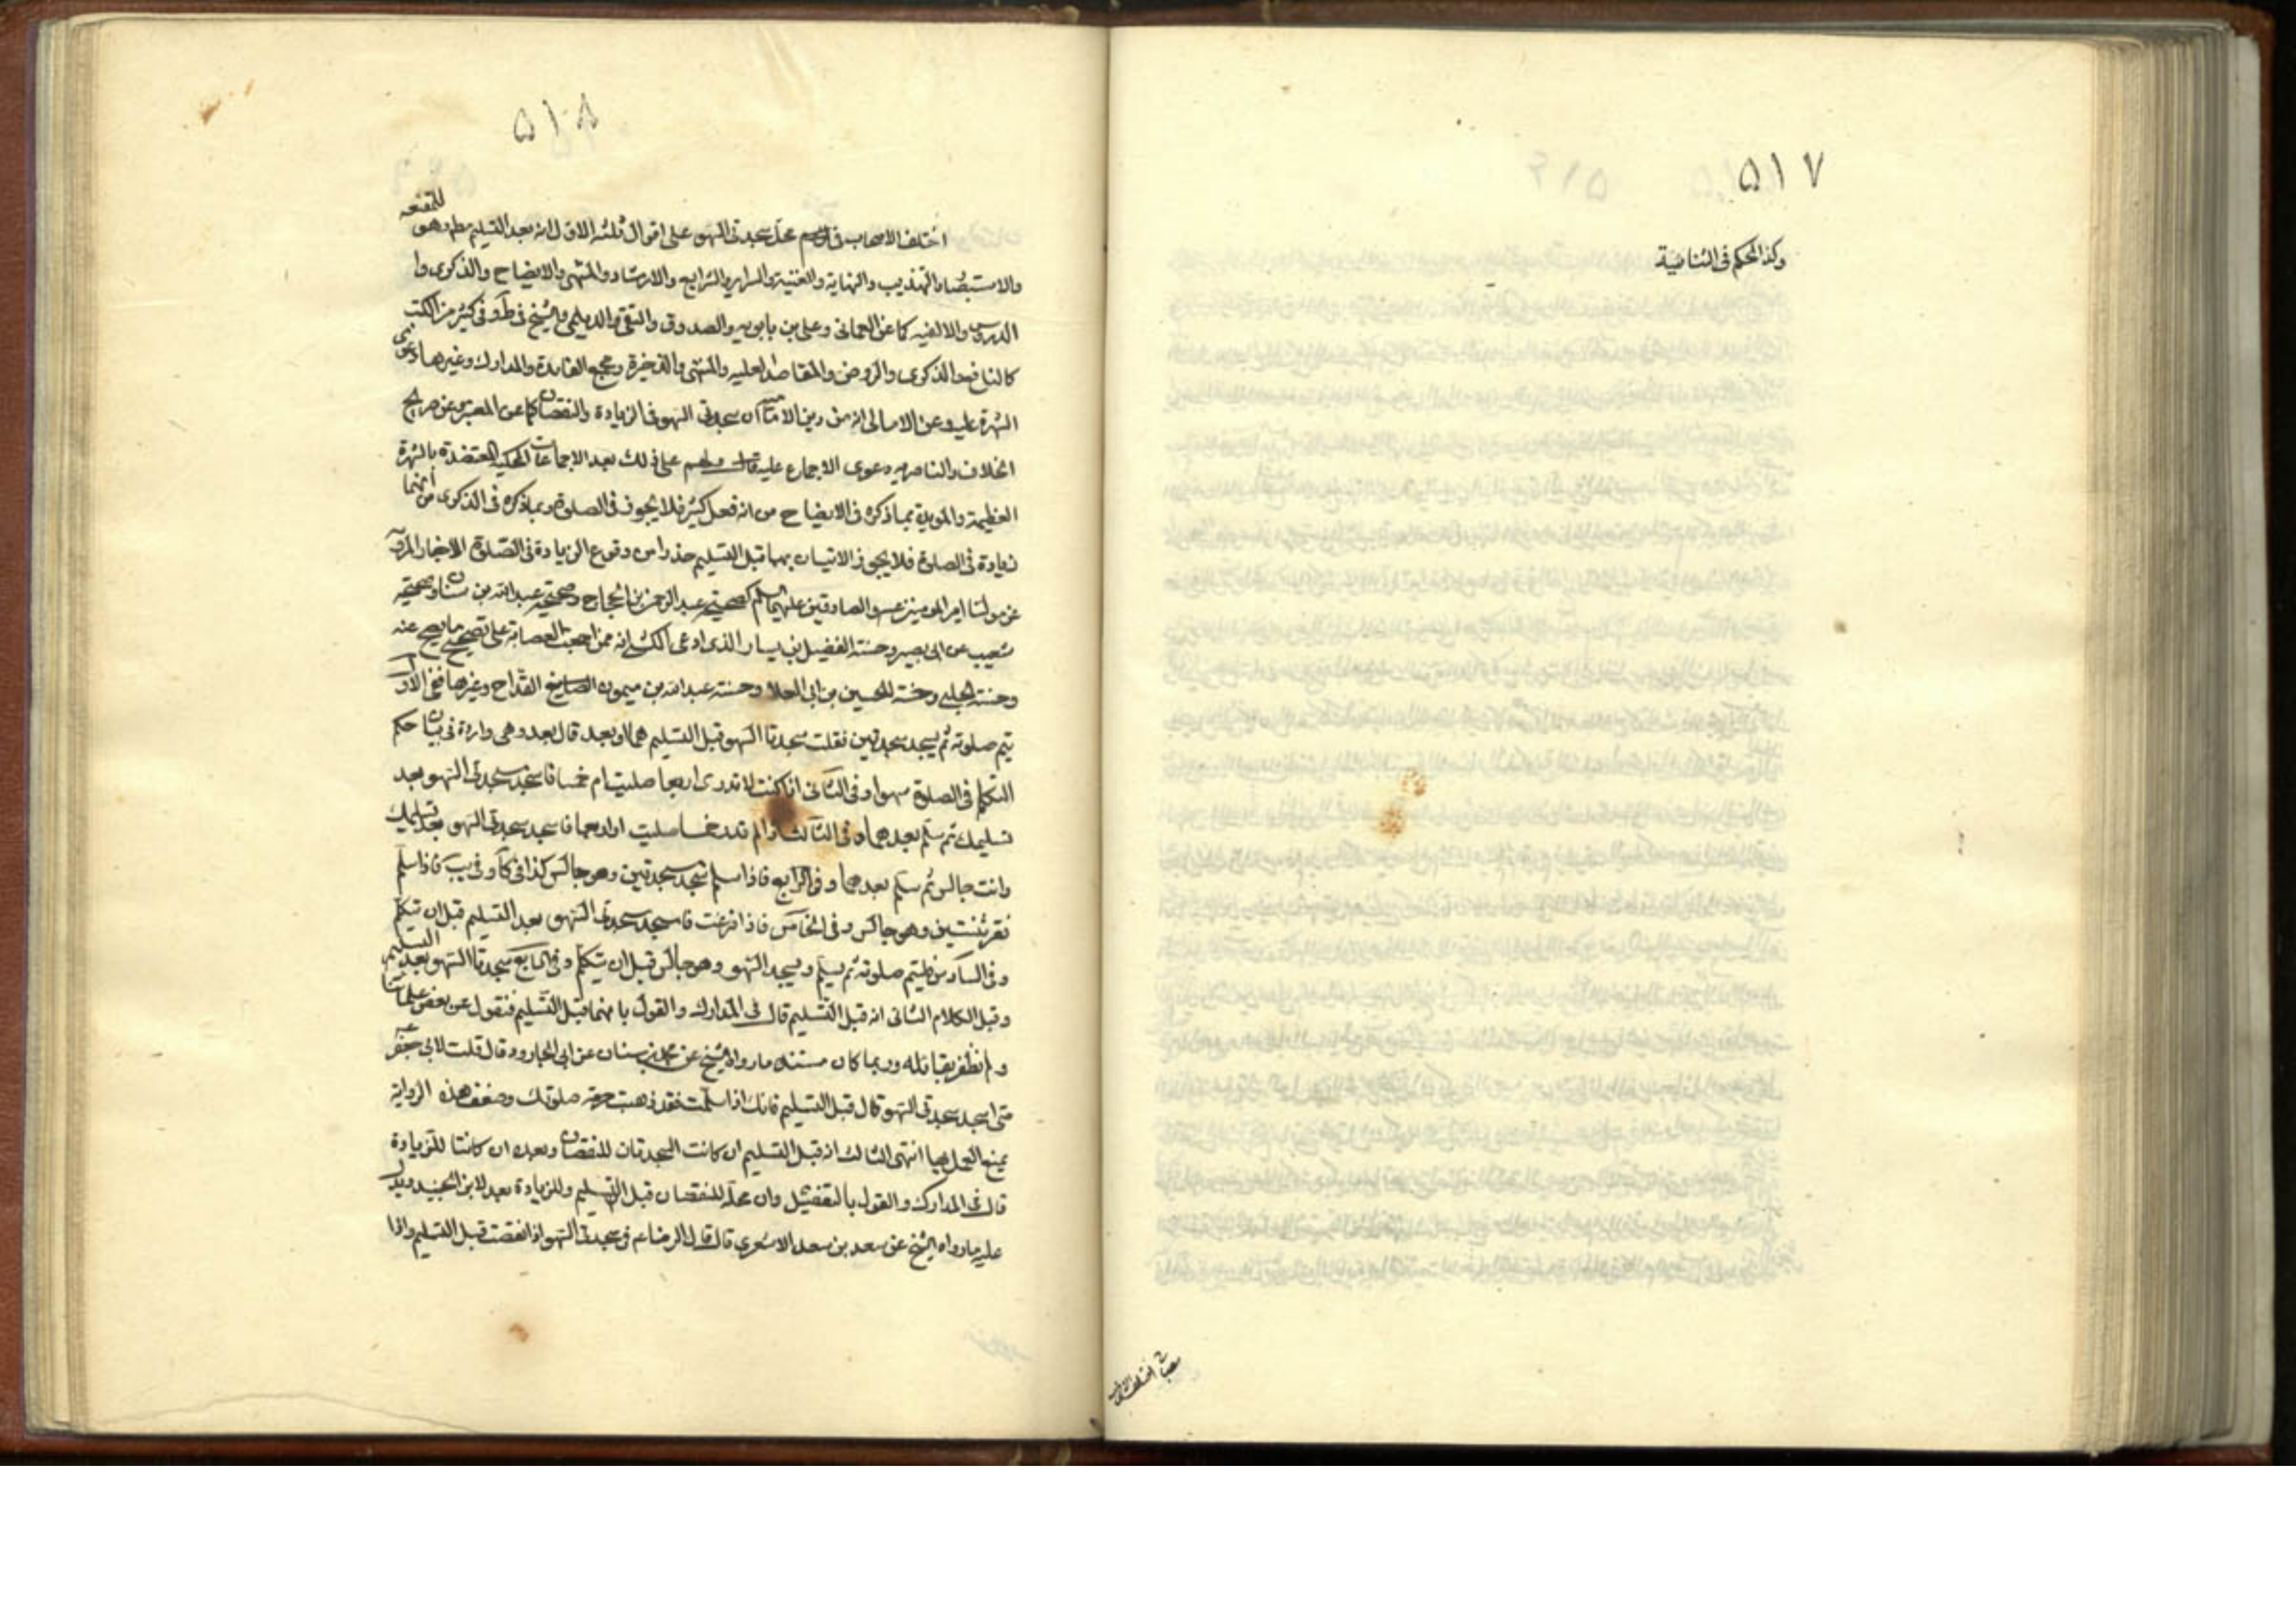 ۵۱۷
وكذا الحكم فى الثنائية
مصباح اختلف الاصحاب
۵۱۸
اختلف الاصحاب فى محل سجدتى السهو على اقوال ثلثه الاول انه بعد التسليم مطلقا وهو للمقنعه
والاستبصار والتهذيب والنهاية والغنية والسراير والشرايع والارشاد والمنتهى والايضاح والذكرى وا
الدروس والالفيه كما عن العمانى وعلى بن بابويه والصدوق والتقى والديلمى والشيخ فى ط وفى كثير من الكتب
كالنافع والذكرى والروض والمقاصد العليه والمنتهى والذخيرة ومجمع الفائدة والمدارك وغيرها دعوى
الشهرة عليه وعن الامالى انه من دين الاماميه ان سجدتى السهو فى الزيادة والنقصان كما عن المعتبر وعن صريح
الخلاف والناصريه دعوى الاجماع عليه على ذلك بعد الاجماعات المحكية المعتضدة بالشهرة
العظيمة والمويدة بما ذكره فى الايضاح من انه فعل كثير فلا يجوز فى الصلوة وبما ذكره فى الذكرى من انهما
زيادة فى الصلوة فلا يجوز الاتيان بهما قبل التسليم حذرا من وقوع الزيادة فى الصلوة الاخبار المرويه
عن مولنا امير المومنين عم والصادقين عليهما السلم كصحيحة عبد الرحمن بن الحجاج وصحيحة عبد الله بن سنان وصحيحة
شعيب عن ابى بصير وحسنة الفضيل بن يسار الذى ادعى الكشى انه ممن اجمعت العصابة على تصحيح ما يصح عنه
وحسنة الحلبى وحسنة للحسين بن ابى العلا وحسنة عبد الله بن ميمون القداح وغيرها ففى الاول
يتم صلوته ثم يسجد سجدتين فقلت سجدتا السهو قبل التسليم هما او بعد قال بعد وهى واردة فى بيان حكم
التكلم فى الصلوة سهوا وفى الثانى اذا كنت لا تدرى اربعا صليت ام خمسا فاسجد سجدتى السهو بعد
تسليمك ثم سلم بعدهما وفى الثالث اذا لم تدر خمسا صليت او اربعا فاسجد سجدتى السهو بعد تسليمك
وانت جالس ثم سلم بعدهما وفى الرابع فاذا سلم سجد سجدتين وهو جالس كذا فى كا وفى يب فاذا سلم
نقر ثنتين وهو جالس وفى الخامس فاذا فرغت فاسجد سجدتى السهو بعد التسليم قبل ان تتكلم
وفى السادس فليتم صلوته ثم يسلم ويسجد السهو وهو جالس قبل ان يتكلم وفى السابع سجدتا السهو بعد التسليم
وقبل الكلام الثانى انه قبل التسليم قال فى المدارك والقول بانهما قبل التسليم منقول عن بعض علمائنا
ولم نظفر بقائله وربما كان مستنده ما رواه الشيخ عن محمد بن سنان عن ابى الجارود قال قلت لابى جعفر
متى اسجد سجدتى السهو قال قبل التسليم فانك اذا سلمت فقد ذهبت حرمة صلوتك وضعف هذه الرواية
يمنع العمل بها انتهى الثالث انه قبل التسليم ان كانت السجدتان للنقصان وبعده ان كانتا للزيادة
قال فى المدارك والقول بالتفصيل وان محله للنقصان قبل التسليم وللزيادة بعد لابن الجنيد ويدل
عليه ما رواه الشيخ عن سعد بن سعد الاشعرى قال قال الرضا ع فى سجدتى السهو اذا نقصت قبل التسليم واذا